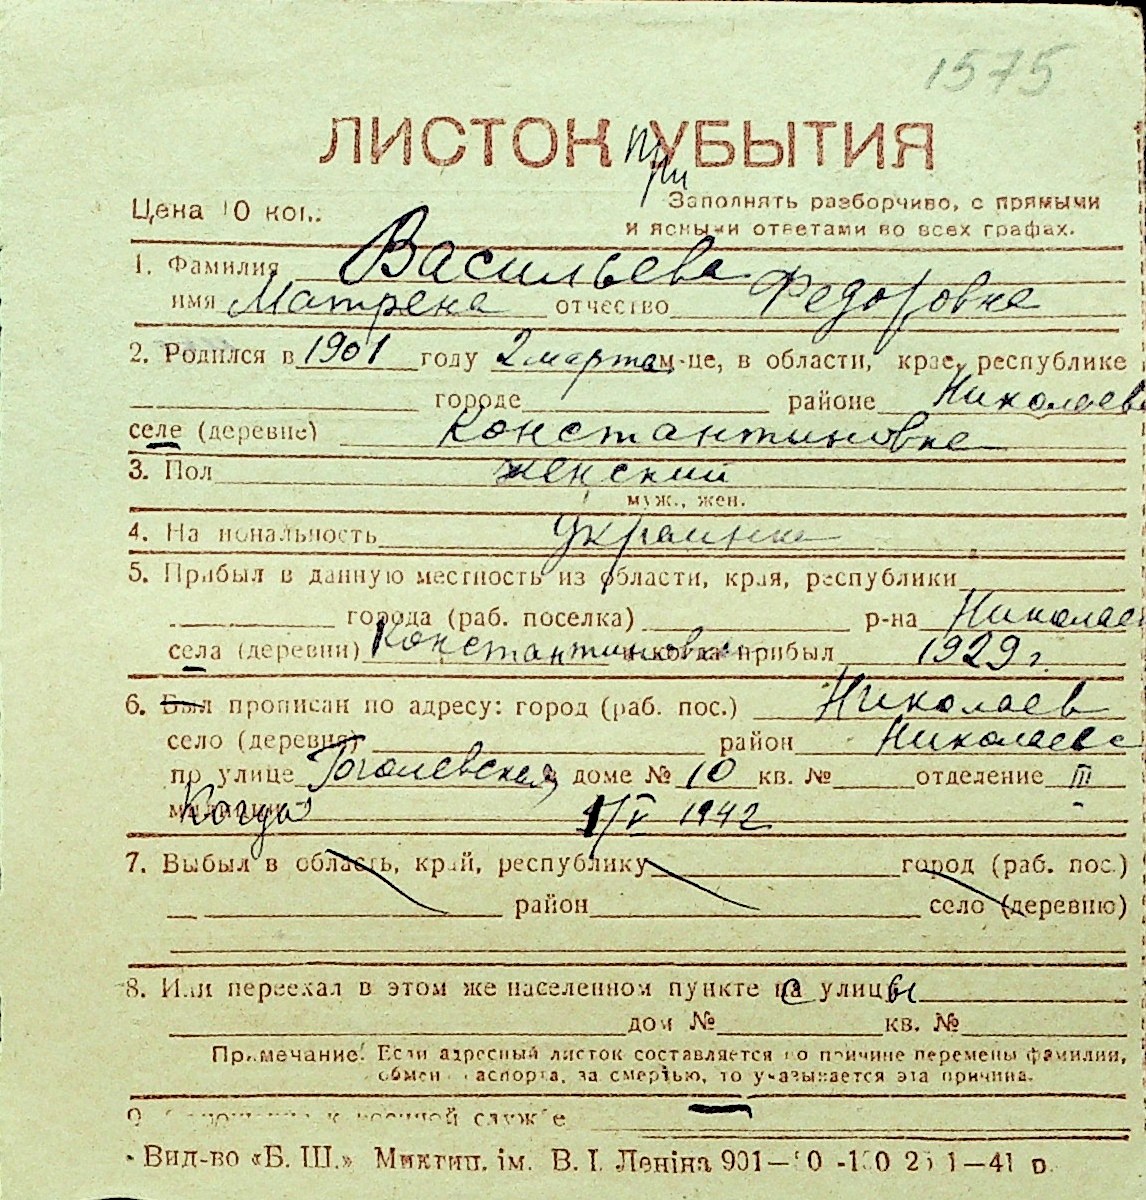 1575
ЛИСТОК при УБЫТИЯ
Цена 10 коп.
Заполнять разборчиво, с прямыми
и ясными ответами во всех графах.
1. Фамилия Васильева
имя Матрена отчество Федоровна
2. Родился в 1901 году 2 марта м-це, в области, крае, республике
городе районе Николаевс
селе (деревне) Константиновке
3. Пол женский
муж., жен.
4. Национальность украинка
5. Прибыл в данную местность из области, края, республики
города (раб. поселка) р-на Николаев
села (деревни) Константиновки и когда прибыл 1929 г.
6. Был прописан по адресу: город (раб. пос.) Николаев
село (деревня) район Николаевс
по улице Гоголевская доме № 10 кв. № отделение III
милиции Когда 1/V 1942
7. Выбыл в область, край, республику город (раб. пос.)
район село (деревню)
8. Или переехал в этом же населенном пункте с улицы
дом № кв. №
Примечание: Если адресный листок составляется по причине перемены фамилии,
обмен паспорта, за смертью, то указывается эта причина.
9. Отношение к военной службе
Вид-во «Б. Ш.» Миктип. ім. В. І. Леніна 901— 41 р.